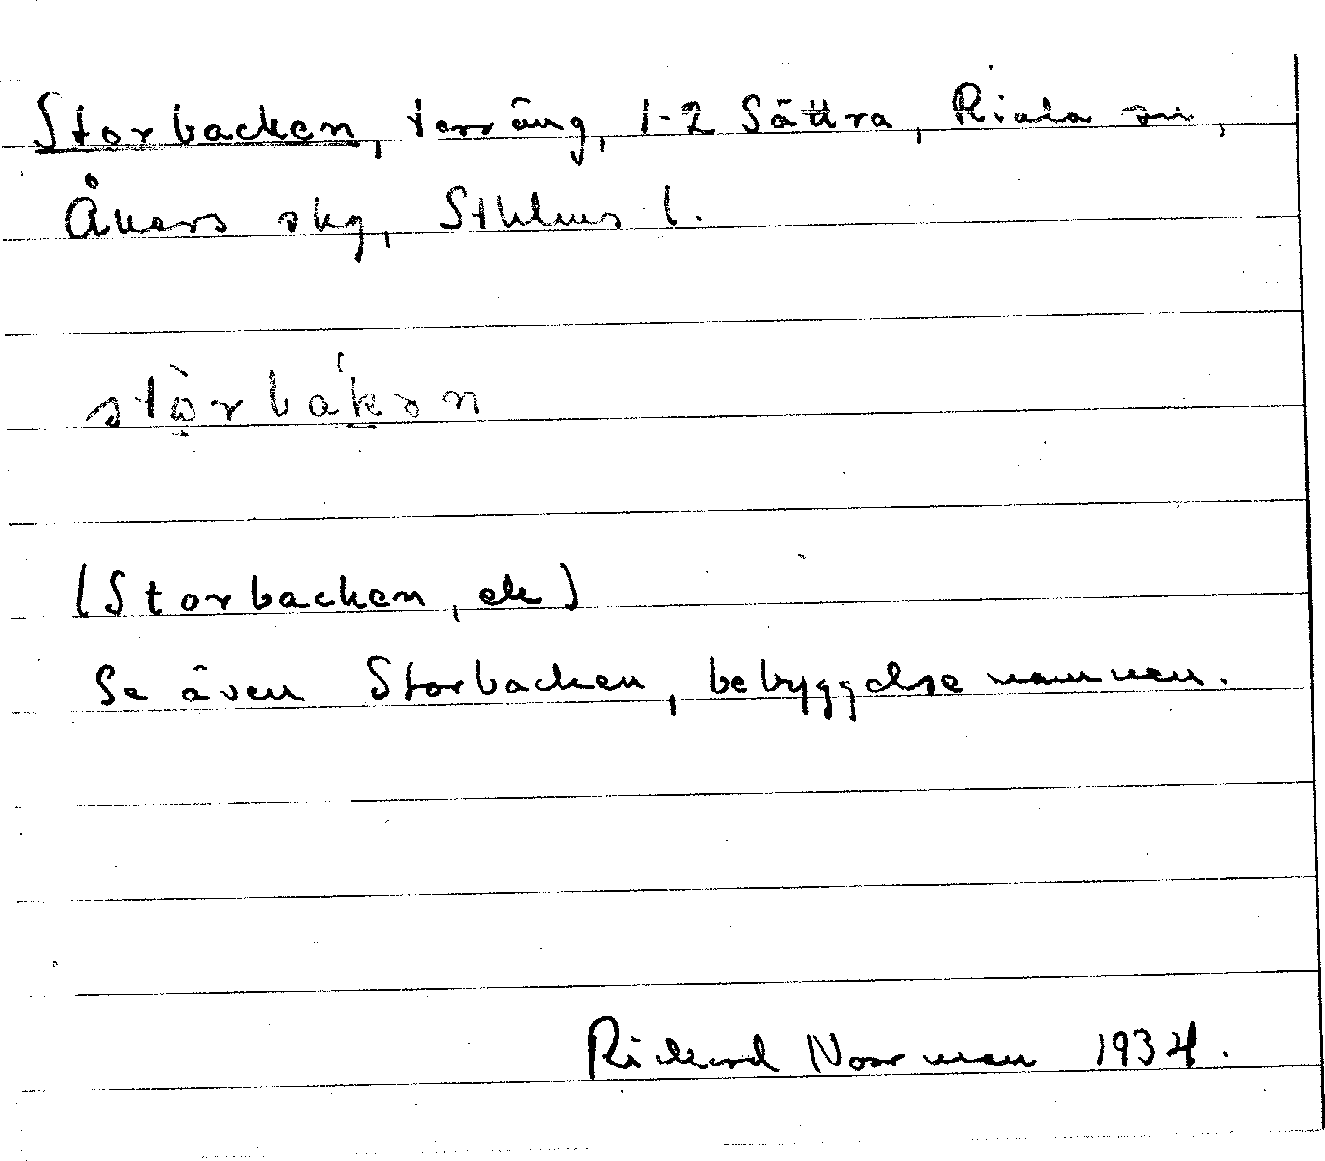 Storbacken, terräng, 1-2 Sättra, Riala sn,
Åkers skg, Sthlms l.
stò̤rbák̠ɘn
(Storbacken, ek)
Se även Storbacken, bebyggelsenamnen.
Rickard Norrman 1934.